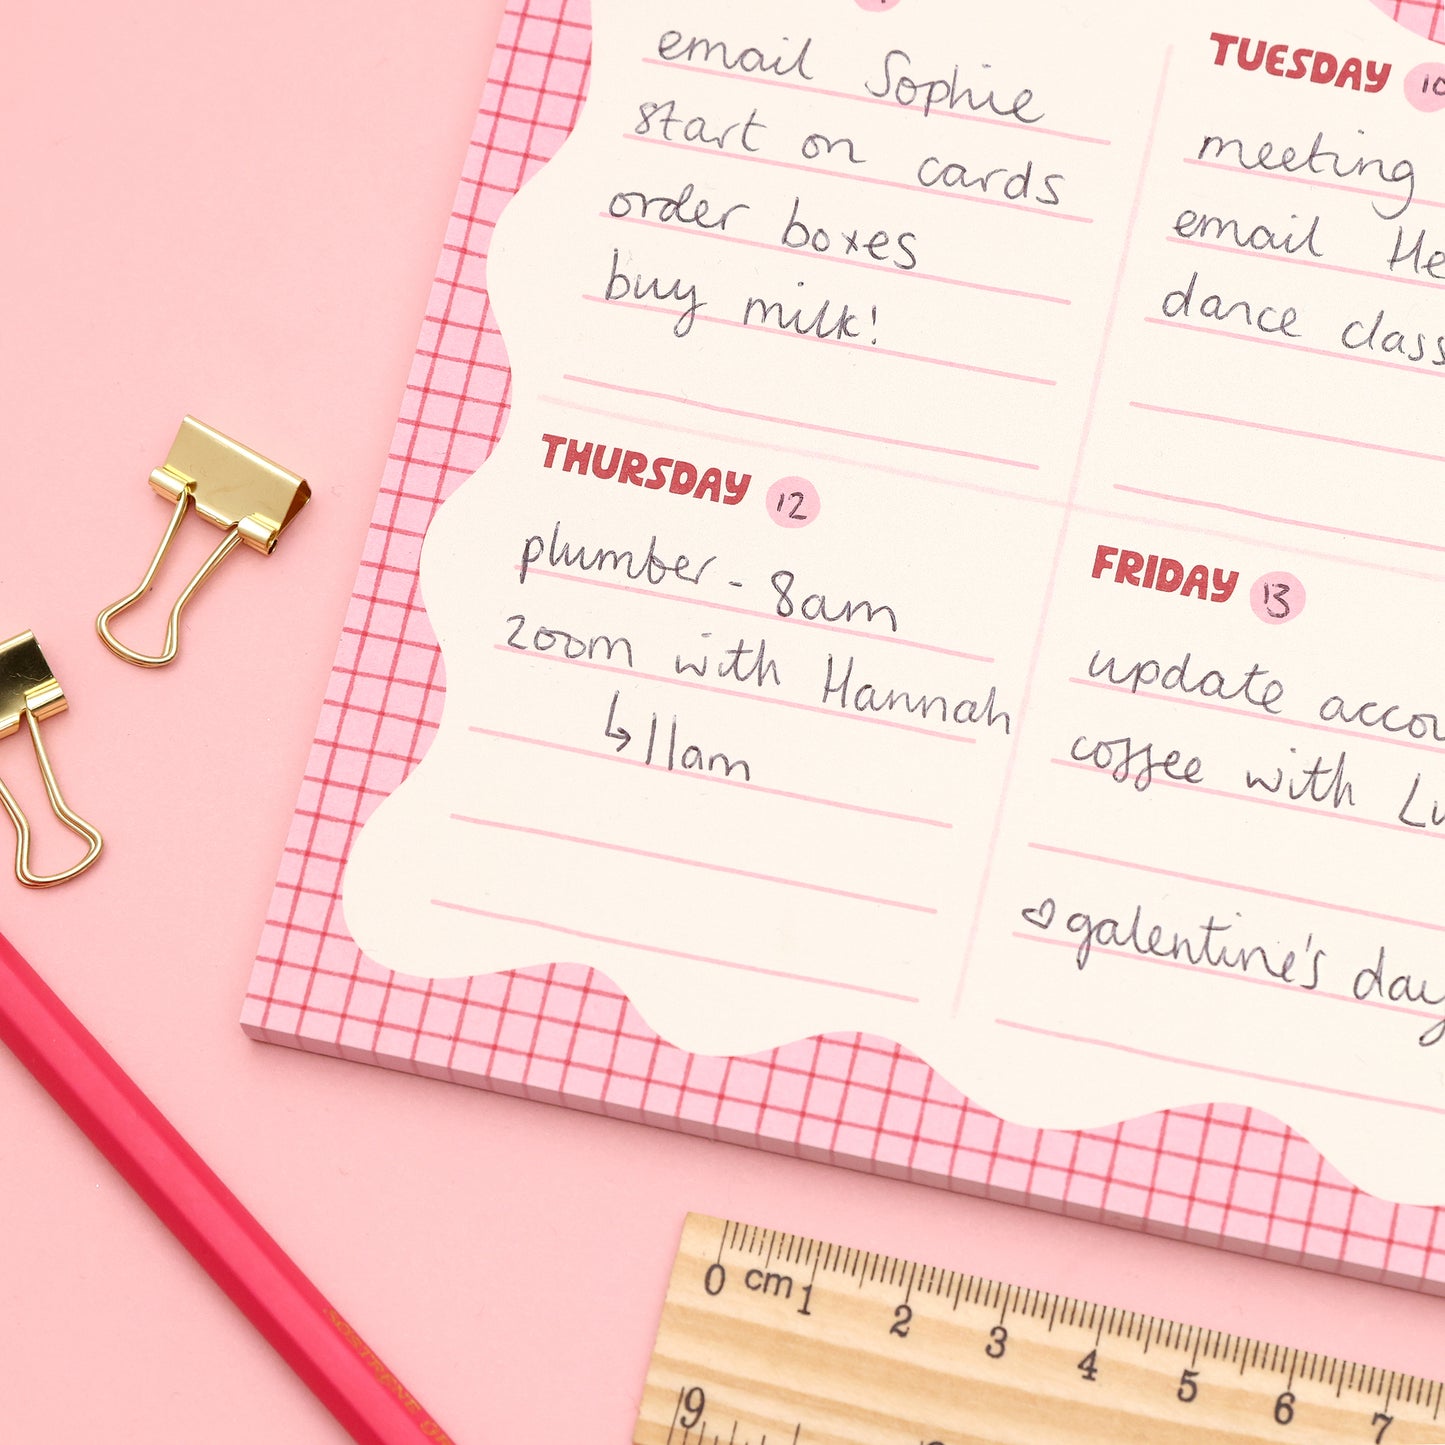 email Sophie
start on cards
order boxes
buy milk!
TUESDAY 10
meeting
email He
dance class
THURSDAY 12
plumber - 8am
zoom with Hannah
↳ 11am
FRIDAY 13
update accou
coffee with Lu
♡ galentine's day
0 cm 1 2 3 4 5 6 7
9